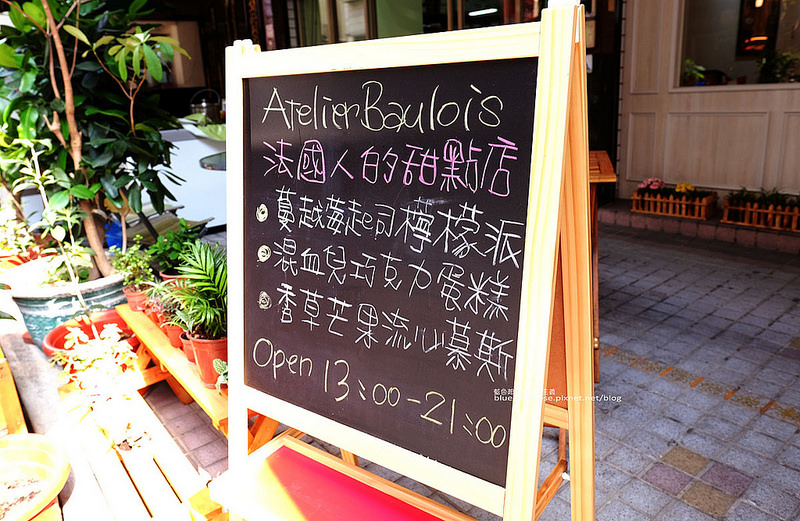 Atelier Baulois
法國人的甜點店
蔓越莓起司檸檬派
混血兒巧克力蛋糕
香草芒果流心慕斯
Open 13:00-21:00